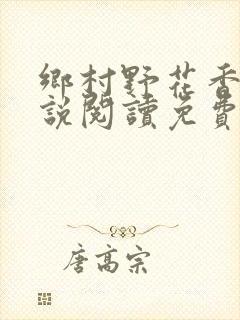 鄉村野花香
說閱讀免費
唐高宗